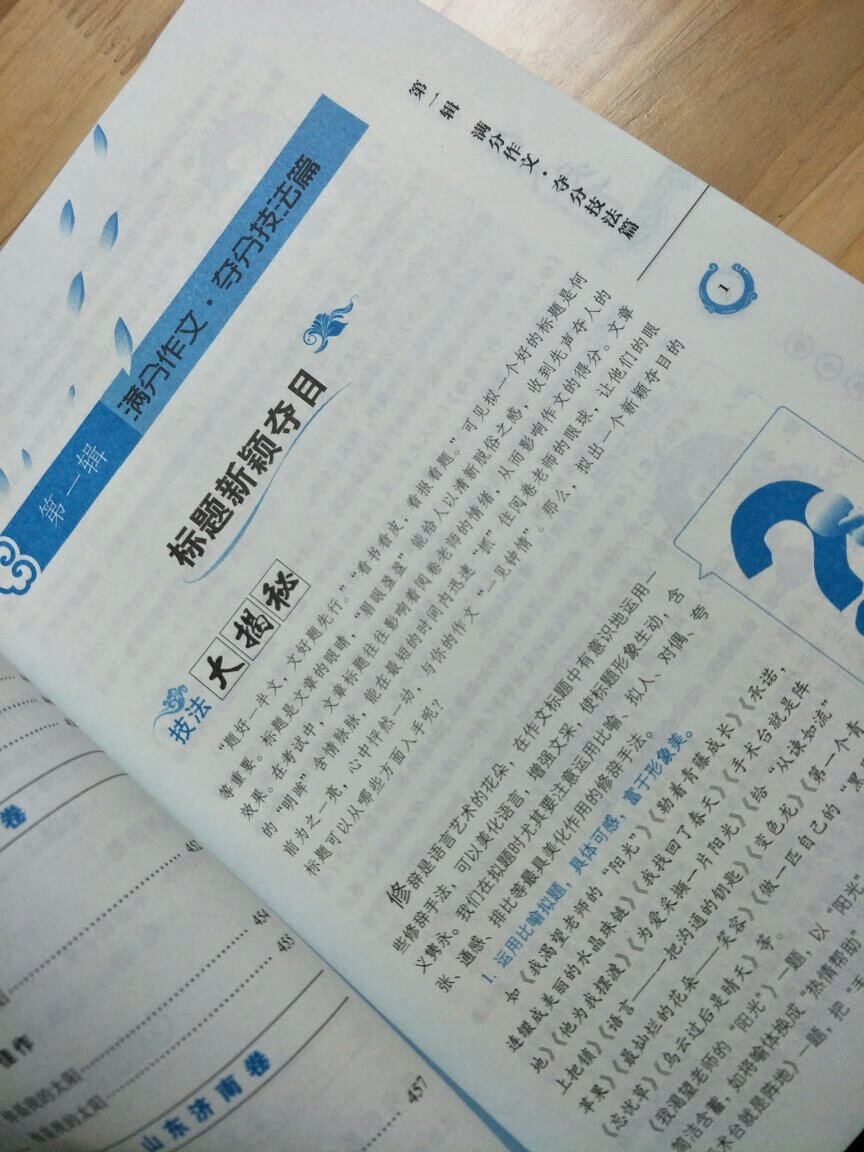 第一辑 满分作文·夺分技法篇
1
第一辑 满分作文·夺分技法篇
标题新颖夺目
技法大揭秘
“题好一半文，文好题先行。”“看书看皮，看报看题。”可见拟一个好的标题是何
等重要。标题是文章的眼睛，“眉眼盈盈”能给人以清新脱俗之感，收到先声夺人的
效果。在考试中，文章标题往往影响着阅卷老师的情绪，从而影响作文的得分。文章
的“明眸”含情脉脉，能在最短的时间内迅速“抓”住阅卷老师的眼球，让他们的眼
前为之一亮，心中怦然一动，与你的作文“一见钟情”。那么，拟出一个新颖夺目的
标题可以从哪些方面入手呢？
修辞是语言艺术的花朵，在作文标题中有意识地运用一
些修辞手法，可以美化语言，增强文采，使标题形象生动，含
义隽永。我们在拟题时尤其要注意运用比喻、拟人、对偶、夸
张、通感、排比等最具美化作用的修辞手法。
1. 运用比喻拟题，具体可感，富于形象美。
如《我渴望老师的“阳光”》《勒着青藤成长》《承诺，
连缀成美丽的水晶珠链》《我找回了春天》《手术台就是阵
地》《他为我摆渡》《为爱采撷一片阳光》《给“从谏如流”
上把锁》《语言——一把沟通的钥匙》《变色龙》《第一个青
苹果》《最灿烂的花朵——笑容》《做一匹自己的“黑
《忘忧草》《乌云过后是晴天》等。
《我渴望老师的“阳光”》一题，以“阳光”
简洁含蓄，如将喻体换成“热情帮助”
术台就是阵地》一题，把“手
卷
454
455
佳作
457
山东济南卷